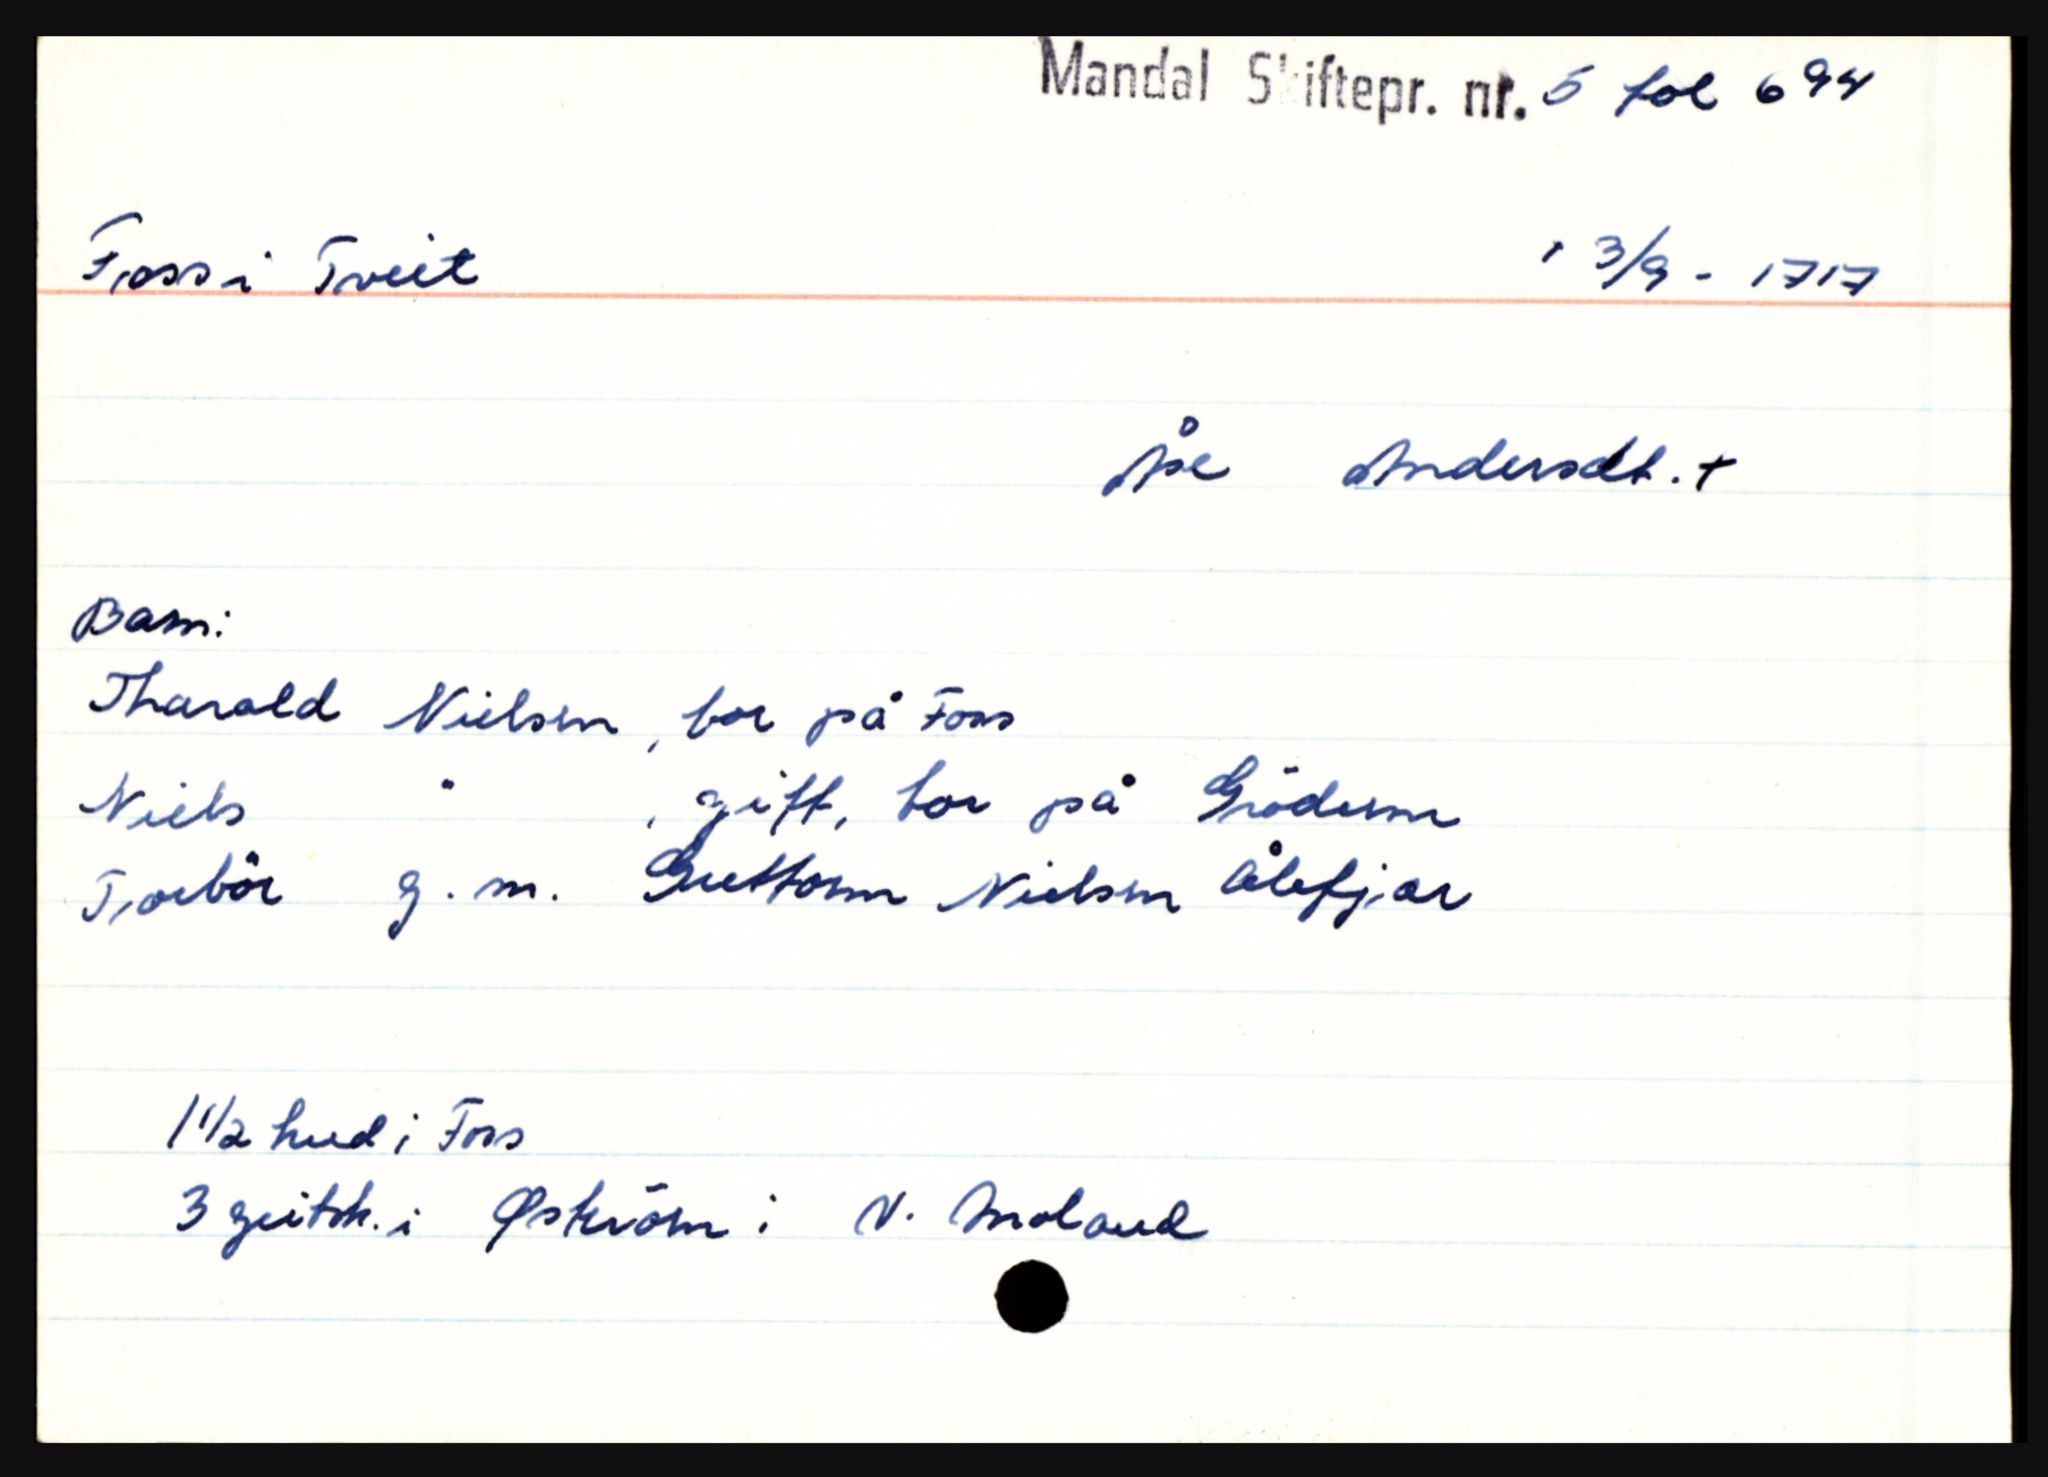 Mandal Skiftepr. nr. 5 fol 694
Foss i Tveit 13/9 - 1717
Åse Andersdt. +
Barn:
Tharald Nielsen, bor på Foss
Niels " , gift, bor på Grödem
Torbör g. m. Guttorm Nielsen Ålefjær
1 1/2 hud i Foss
3 geitsk. i Øström i V. Moland